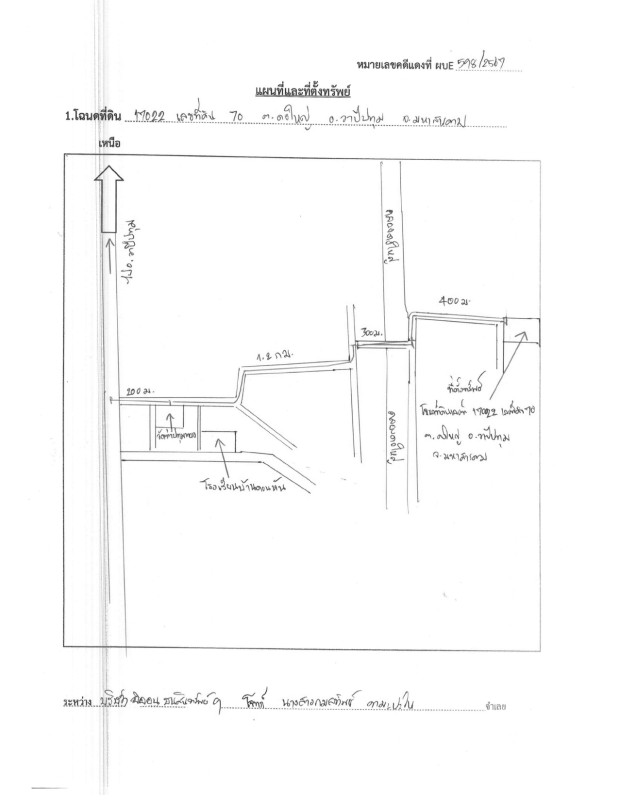 หมายเลขคดีแดงที่ ผบE 598/2567
แผนที่และที่ตั้งทรัพย์
1.โฉนดที่ดิน 17022 เลขที่ดิน 70 ต.ดงใหญ่ อ.วาปีปทุม จ.มหาสารคาม
เหนือ
ไป อ.วาปีปทุม
คลองดงใหญ่
400 ม.
300 ม.
1.2 กม.
200 ม.
ที่ตั้งทรัพย์
โฉนดที่ดินเลขที่ 17022 เลขที่ดิน 70
ต.ดงใหญ่ อ.วาปีปทุม
จ.มหาสารคาม
โรงเรียนบ้าน
ระหว่าง บริษัท โจทก์ นางสาว จำเลย